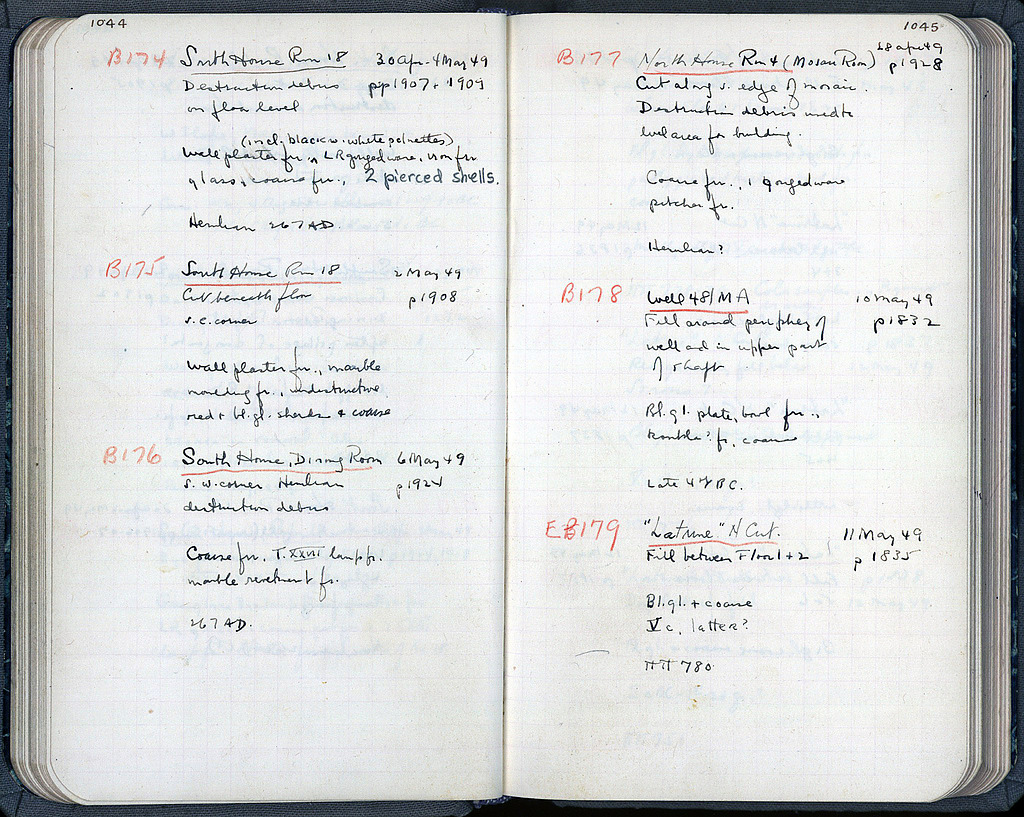 1044
B174 South House Rm 18 30 Apr - 4 May 49
Destruction debris pp 1907 + 1909
on floor level
(incl. black w. white palmettes)
Wall plaster fr., LR gouged ware, iron fr.
glass, coarse fr., 2 pierced shells.
Herulian 267 AD.
B175 South House Rm 18 2 May 49
Cut beneath floor p 1908
S.E. corner
Wall plaster fr., marble
moulding fr., undistinctive
red + bl. gl. sherds + coarse
B176 South House, Dining Room 6 May 49
S.W. corner Herulian p 1924
destruction debris
Coarse fr. T. XXVII lamp fr.
marble revetment fr.
267 AD.
1045
28 Apr 49
B177 North House Rm 4 (Mosaic Room) p 1928
Cut along S. edge of mosaic.
Destruction debris used to
level area for building.
Coarse fr., 1 gouged ware
pitcher fr.
Herulian?
B178 Well 48/MA 10 May 49
Fill around periphery of p 1832
well and in upper part
of shaft
Bl. gl. plate, bowl fr.,
krater? fr., coarse
Late 4th BC.
EB179 "Latrine" N Cut. 11 May 49
Fill between Floor 1 + 2 p 1835
Bl. gl. + coarse
V c. latter?
ΠΠ 780